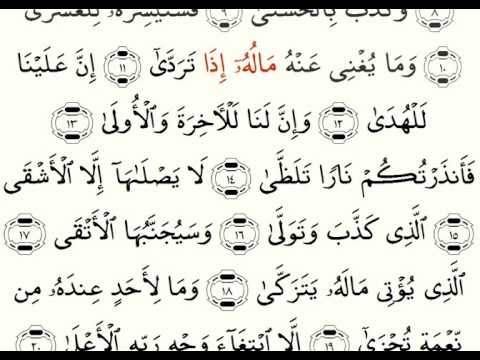 ٨ وَكَذَّبَ بِٱلْحُسْنَىٰ ٩ فَسَنُيَسِّرُهُۥ لِلْعُسْرَىٰ
١٠ وَمَا يُغْنِى عَنْهُ مَالُهُۥٓ إِذَا تَرَدَّىٰٓ ١١ إِنَّ عَلَيْنَا
لَلْهُدَىٰ ١٢ وَإِنَّ لَنَا لَلْأَخِرَةَ وَٱلْأُولَىٰ ١٣
فَأَنذَرْتُكُمْ نَارًا تَلَظَّىٰ ١٤ لَا يَصْلَىٰهَآ إِلَّا ٱلْأَشْقَى
١٥ ٱلَّذِى كَذَّبَ وَتَوَلَّىٰ ١٦ وَسَيُجَنَّبُهَا ٱلْأَتْقَى ١٧
ٱلَّذِى يُؤْتِى مَالَهُۥ يَتَزَكَّىٰ ١٨ وَمَا لِأَحَدٍ عِندَهُۥ مِن
نِّعْمَةٍ تُجْزَىٰٓ ١٩ إِلَّا ٱبْتِغَآءَ وَجْهِ رَبِّهِ ٱلْأَعْلَىٰ ٢٠